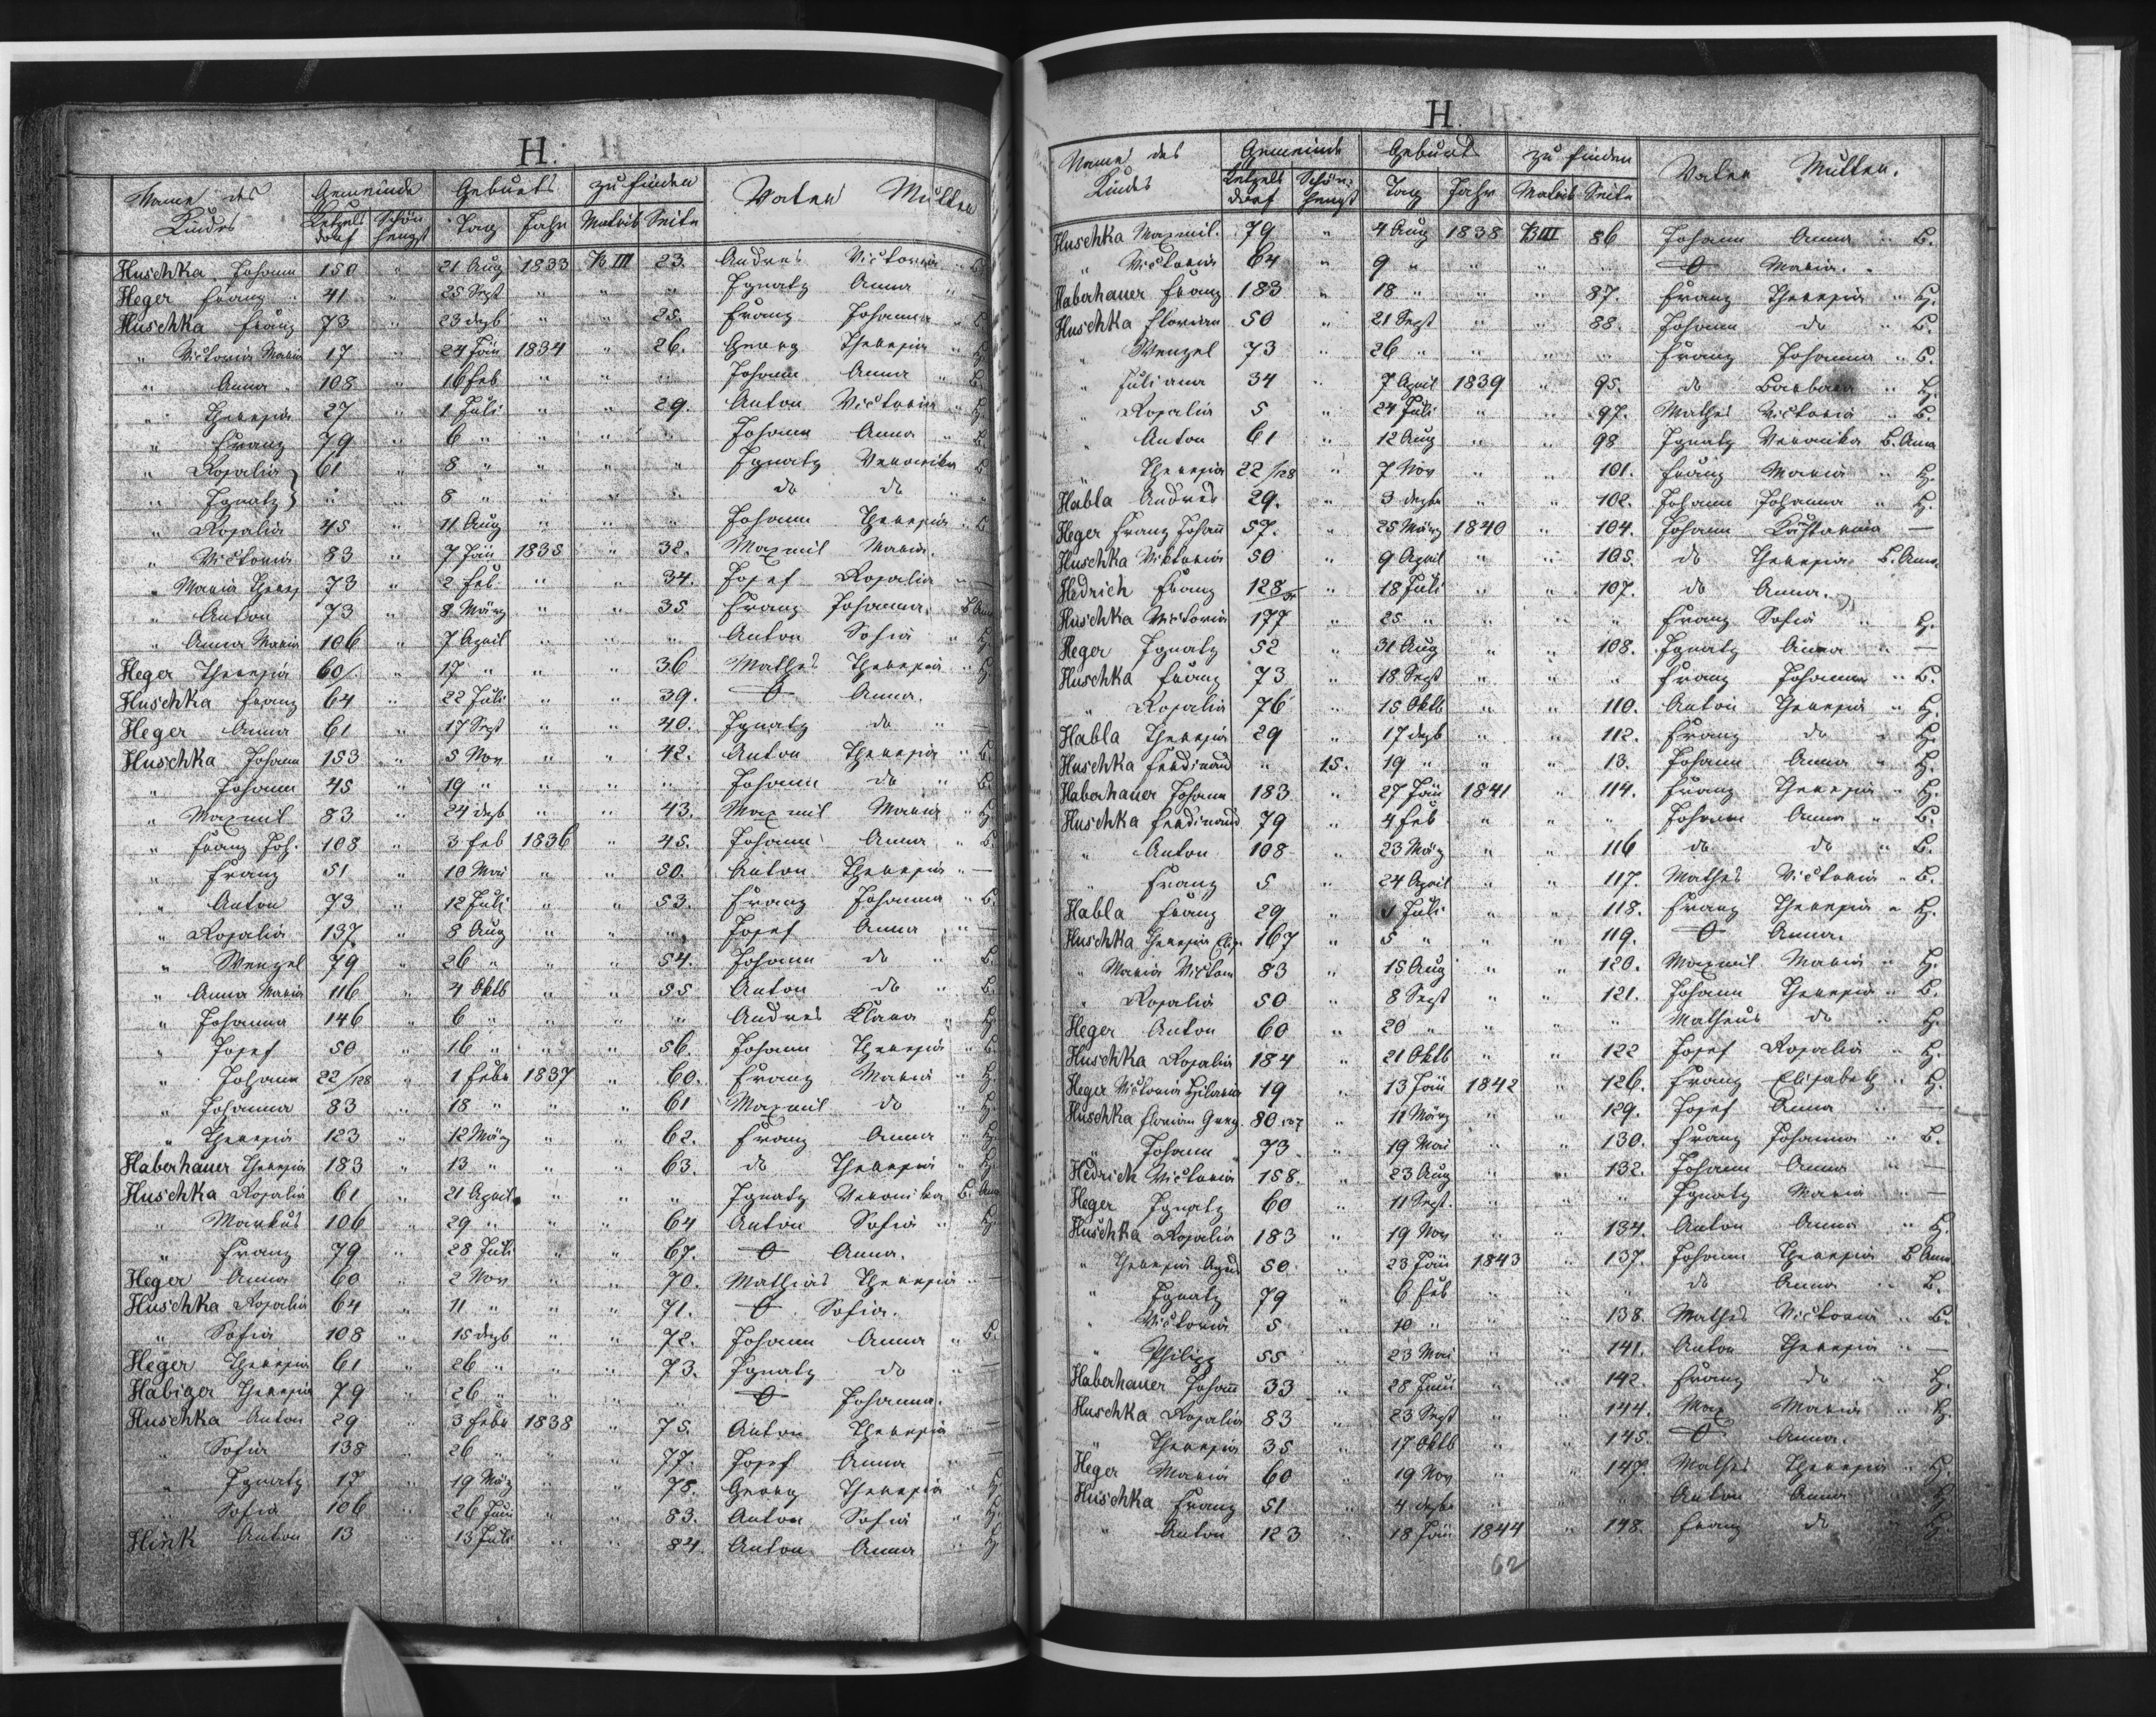 H.
Name des Kindes Gemeinde Geburts zu finden Vater Mutter
Ketzelsdorf Schönhengst Tag Jahr Matrik Seite
Huschka Johann 150 " 21 Aug 1833 B III 23. Andres Victoria "
Heger Franz 41 " 25 Sept " " " Ignatz Anna " —
Huschka Franz 73 " 23 dezb " " 25. Franz Johanna "
" Victoria Maria 17 " 24 Jän 1834 " 26. Georg Theresia " H.
" Anna 108 " 16 Feb " " " Johann Anna " B.
" Theresia 27 " 1 Juli " " 29. Anton Victoria " H.
" Franz 79 " 6 " " " " Johann Anna " B.
" Rosalia } 61 " 8 " " " " Ignatz Veronika B
" Ignatz } " " 8 " " " " do do "
" Rosalia 45 " 11 Aug " " " Johann Theresia " B
" Victoria 83 " 7 Jän 1835 " 32. Maxmil Maria.
" Maria Theres 73 " 2 Feb " " 34. Josef Rosalia " —
" Anton 73 " 8 März " " 35 Franz Johanna. B Anna
" Anna Maria 106 " 7 April " " " Anton Sofia " H.
Heger Theresia 60 " 17 " " " 36 Mathes Theresia " H
Huschka Franz 64 " 22 Juli " " 39. O Anna.
Heger Anna 61 " 17 Sept " " 40. Ignatz do " —
Huschka Johann 153 " 5 Nov " " 42. Anton Theresia " B.
" Johann 45 " 19 " " " " Johann do " B.
" Maxmil 83 " 24 dezb " " 43. Maxmil Maria " H
" Franz Joh. 108 " 3 Feb 1836 " 45. Johann Anna " B.
" Franz 51 " 10 Mai " " 50. Anton Theresia " —
" Anton 73 " 12 Juli " " 53. Franz Johanna " B.
" Rosalia 137 " 8 Aug " " " Josef Anna " —
" Wenzel 79 " 26 " " " 54. Johann do " B.
" Anna Maria 116 " 4 Oktb " " 55 Anton do " B.
" Johanna 146 " 6 " " " " Andres Klara " H
" Josef 50 " 16 " " " 56. Johann Theresia " B
" Johann 22/128 " 1 Febr 1837 " 60. Franz Maria " H.
" Johanna 83 " 18 " " " 61 Maxmil do " H.
" Theresia 123 " 12 März " " 62. Franz Anna " H
Haberhauer Theresia 183 " 13 " " " 63. do Theresia " H.
Huschka Rosalia 61 " 21 April " " " Ignatz Veronika B. Anna
" Markus 106 " 29 " " " 64 Anton Sofia " H.
" Franz 79 " 28 Juli " " 67. O Anna.
Heger Anna 60 " 2 Nov " " 70. Mathias Theresia " —
Huschka Rosalia 64 " 11 " " " 71. O Sofia.
" Sofia 108 " 15 dezb " " 72. Johann Anna " B.
Heger Theresia 61 " 26 " " " 73. Ignatz do " —
Habiger Theresia 79 " 26 " " " " O Johanna.
Huschka Anton 29 " 3 Febr 1838 " 75. Anton Theresia " —
" Sofia 138 " 26 " " " 77. Josef Anna "
" Ignatz 17 " 19 März " " 78. Georg Theresia " H
" Sofia 106 " 26 Juni " " 83. Anton Sofia " H.
Hink Anton 13 13 Juli " " 84. Anton Anna " H
H.
Name des Kindes Gemeinde Geburts zu finden Vater Mutter.
Ketzelsdorf Schönhengst Tag Jahr Matrik Seite
Huschka Maxmil. 79 " 4 Aug 1838 B III 86 Johann Anna " B.
" Victoria 64 " 9 " " " " O Maria. "
Haberhauer Franz 183 " 18 " " " 87. Franz Theresia " H.
Huschka Florian 50 " 21 Sept " " 88. Johann do " B.
" Wenzel 73 " 26 " " " " Franz Johanna " B.
" Juliana 34 " 7 April 1839 " 95. do Barbara " H.
" Rosalia 5 " 24 Juli " " 97. Mathes Victoria " B.
" Anton 61 " 12 Aug " " 98 Ignatz Veronika B. Anna
" Theresia 22/128 " 7 Nov " " 101. Franz Maria " H.
Habla Andres 29. " 3 dezbr " " 102. Johann Johanna " H.
Heger Franz Johann 57. " 25 März 1840 " 104. Johann —
Huschka Viktoria 50 " 9 April " " 105. do Theresia. B. Anna
Hedrich Franz 128 " 18 Juli " " 107. do Anna.
Huschka Victoria 177 " 25 " " " " Franz Sofia " H.
Heger Ignatz 52 " 31 Aug " " 108. Ignatz Anna " —
Huschka Franz 73 " 18 Sept " " " Franz Johanna " B.
" Rosalia 76 " 15 Oktb " " 110. Anton Theresia " H.
Habla Theresia 29 " 17 dezb " " 112. Franz do " H.
Huschka Ferdinand " 15. 19 " " " 13. Johann Anna " H.
Haberhauer Johann 183 " 27 Jän 1841 " 114. Franz Theresia " H.
Huschka Ferdinand 79 " 4 Feb " " " Johann Anna " B.
" Anton 108 " 23 März " " 116 do do " B.
" Franz 5 " 24 April " " 117. Mathes Victoria " B.
Habla Franz 29 " 1 Juli " " 118. Franz Theresia " H.
Huschka Theresia Elis. 167 " 5 " " " 119. O Anna.
" Maria Victoria 83 " 15 Aug " " 120. Maxmil Maria " H.
" Rosalia 50 " 8 Sept " " 121. Johann Theresia " B.
Heger Anton 60 " 20 " " " " Matheus do " H.
Huschka Rosalia 184 " 21 Oktb " " 122 Josef Rosalia " H.
Heger Victoria Hilaria 19 " 13 Jän 1842 " 126. Franz Elisabeth " H.
Huschka Florian Greg. 80.137 " 11 März " " 129. Josef Anna " —
" Johann 73 " 19 Mai " " 130. Franz Johanna " B.
Hedrich Victoria 158. " 23 Aug " " 132. Johann Anna " —
Heger Ignatz 60 " 11 Sept. " " " Ignatz Maria " —
Huschka Rosalia 183 " 19 Nov " " 134. Anton Anna " H.
" Theresia Agnes 50. " 23 Jän 1843 " 137. Johann Theresia B Anna
" Ignatz 79 " 6 Feb " " " do Anna " B.
" Victoria 5 " 10 " " " 138. Mathes Victoria " B.
" Philipp 55 " 23 Mai " " 141. Anton Theresia " —
Haberhauer Johann 33 " 28 Juni " " 142. Franz do " H.
Huschka Rosalia 83 " 23 Sept " " 144. Max Maria " H.
" Theresia 35 " 17 Oktb " " 145. O Anna.
Heger Maria 60 " 19 Nov " " 147. Mathes Theresia " H.
Huschka Franz 51 " 4 dezbr " " " Anton Anna " H
" Anton 123 " 18 Jän 1844 " 148. Franz do " H.
62